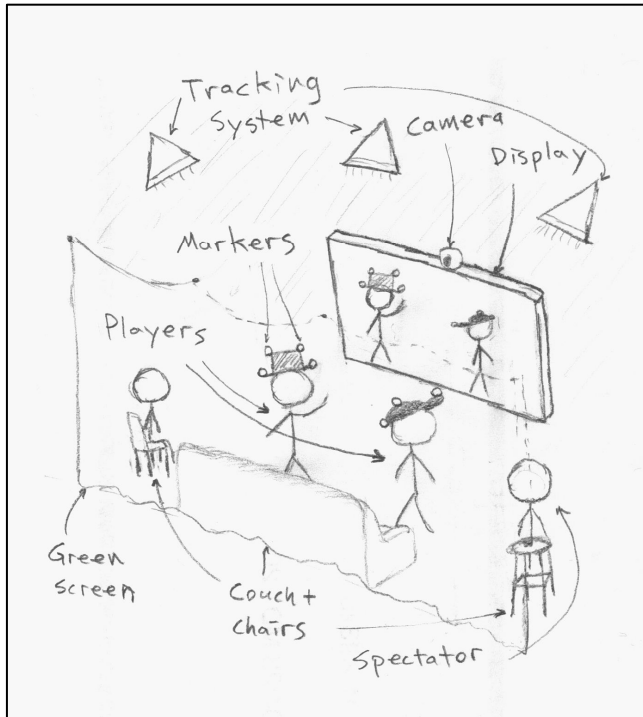 Tracking
System
Camera
Display
Markers
Players
Green
screen
Couch +
chairs
Spectator